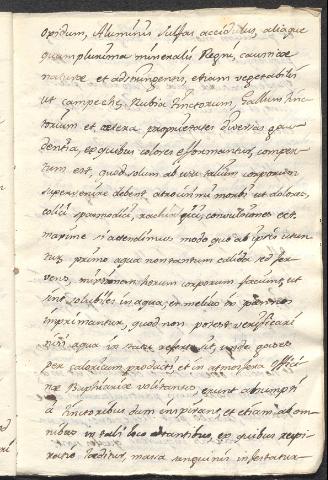 opidum, Aluminis sulfas accidulus, aliaque
quamplurima mineralis Regni, causticae
naturae et adstringentis, etiam vegetabilis
ut campeche, Rubia tinctorum, Gallum tinc-
torium et cetera proprietates diversas gau-
dentia, ex quibus colores efformantur, comper-
tum est, quod solum ab usu talium corporum
supervenire debent atrocissimi morbi ut dolores,
colici spasmodici, rachialgici, convulsiones ect.
maxime si attendimus modo quo ab ipsis utun-
tur, primo aqua non tantum calida sed fer-
vens, mixtionem horum corporum faciunt, ut
sint solubiles in aqua, et melius in pannos
imprimantur, quod non potest verificari
nisi aqua in statu refert, unde gases
per caloricum producti, et in atmosfera Offici-
nae volitantes, erunt absumpti
a tinctoribus dum inspirant, et etiam ab om-
nibus in tali loco stantibus, ex quibus respi-
ratio laeditur, massa sanguinis infestatur